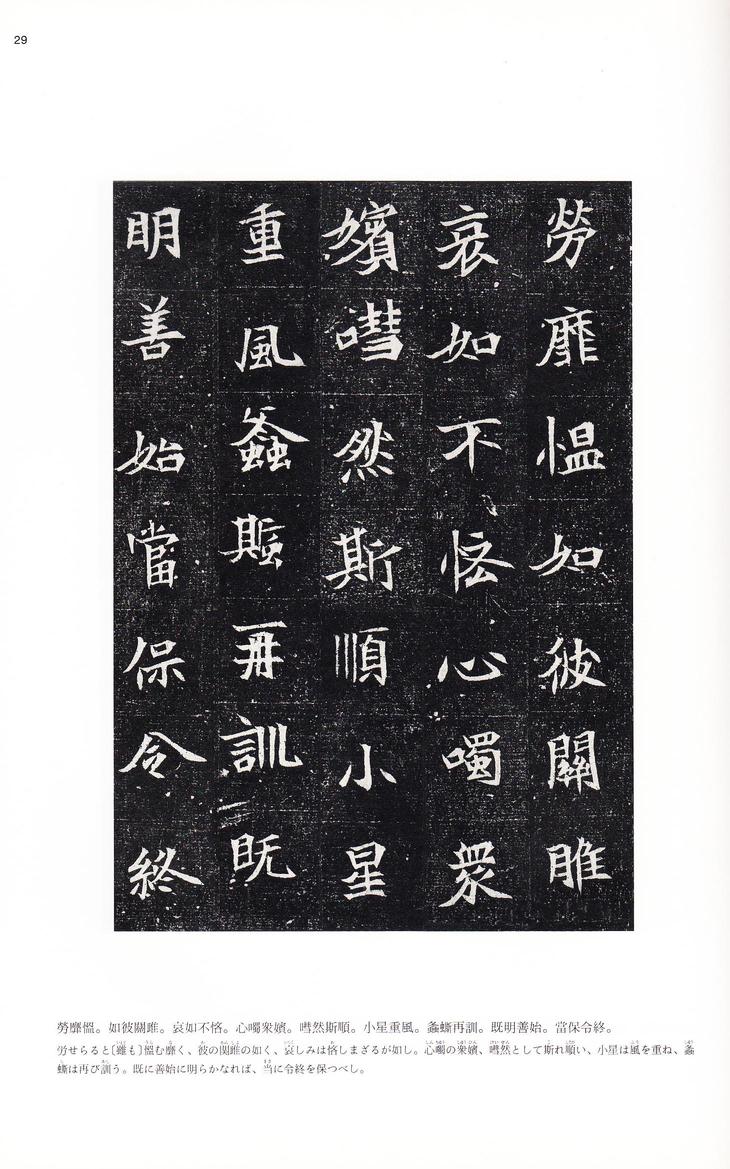 29
勞靡愠如彼關雎
哀如不恡心囑衆
嬪嘒然斯順小星
重風螽蟴再訓既
明善始當保令終
勞靡慍。如彼關雎。哀如不悋。心囑衆嬪。嘒然斯順。小星重風。螽蟴再訓。既明善始。當保令終。
労せらると〔雖も〕慍む靡く、彼の関雎の如く、哀しみは悋しまざるが如し。心囑の衆嬪、嘒然として斯れ順い、小星は風を重ね、螽
蟴は再び訓う。既に善始に明らかなれば、当に令終を保つべし。